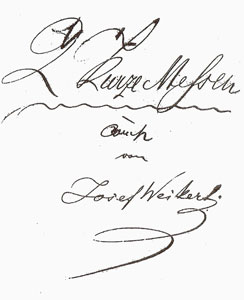 2 Kurze Messen
von
Josef Weikert.